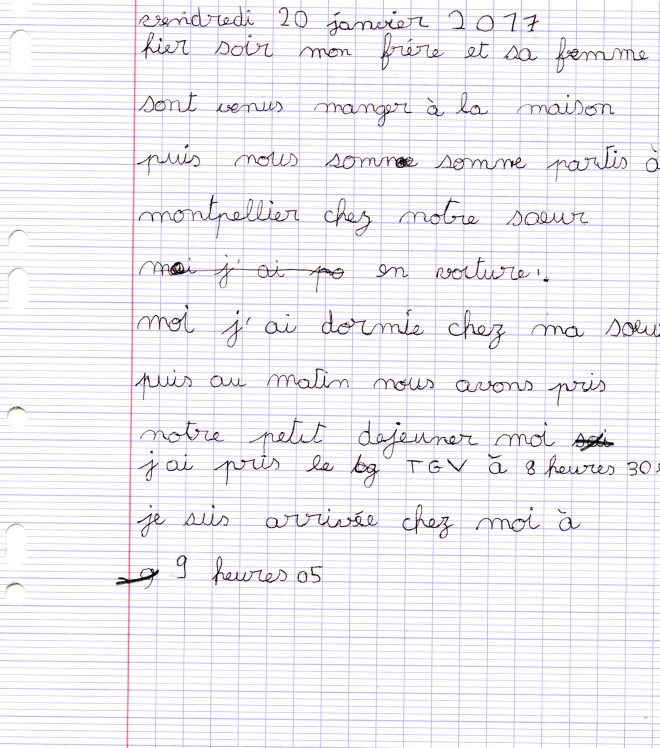 vendredi 20 janvier 2017
hier soir mon frére et sa femme
sont venus manger à la maison
puis nous somme somme partis à
montpellier chez notre soeur
moi j'ai po en voiture.
moi j'ai dormie chez ma soeu
puis au matin nous avons pris
notre petit dejeuner moi
j'ai pris le tg TGV à 8 heures 30
je suis arrivée chez moi à
9 heures 05